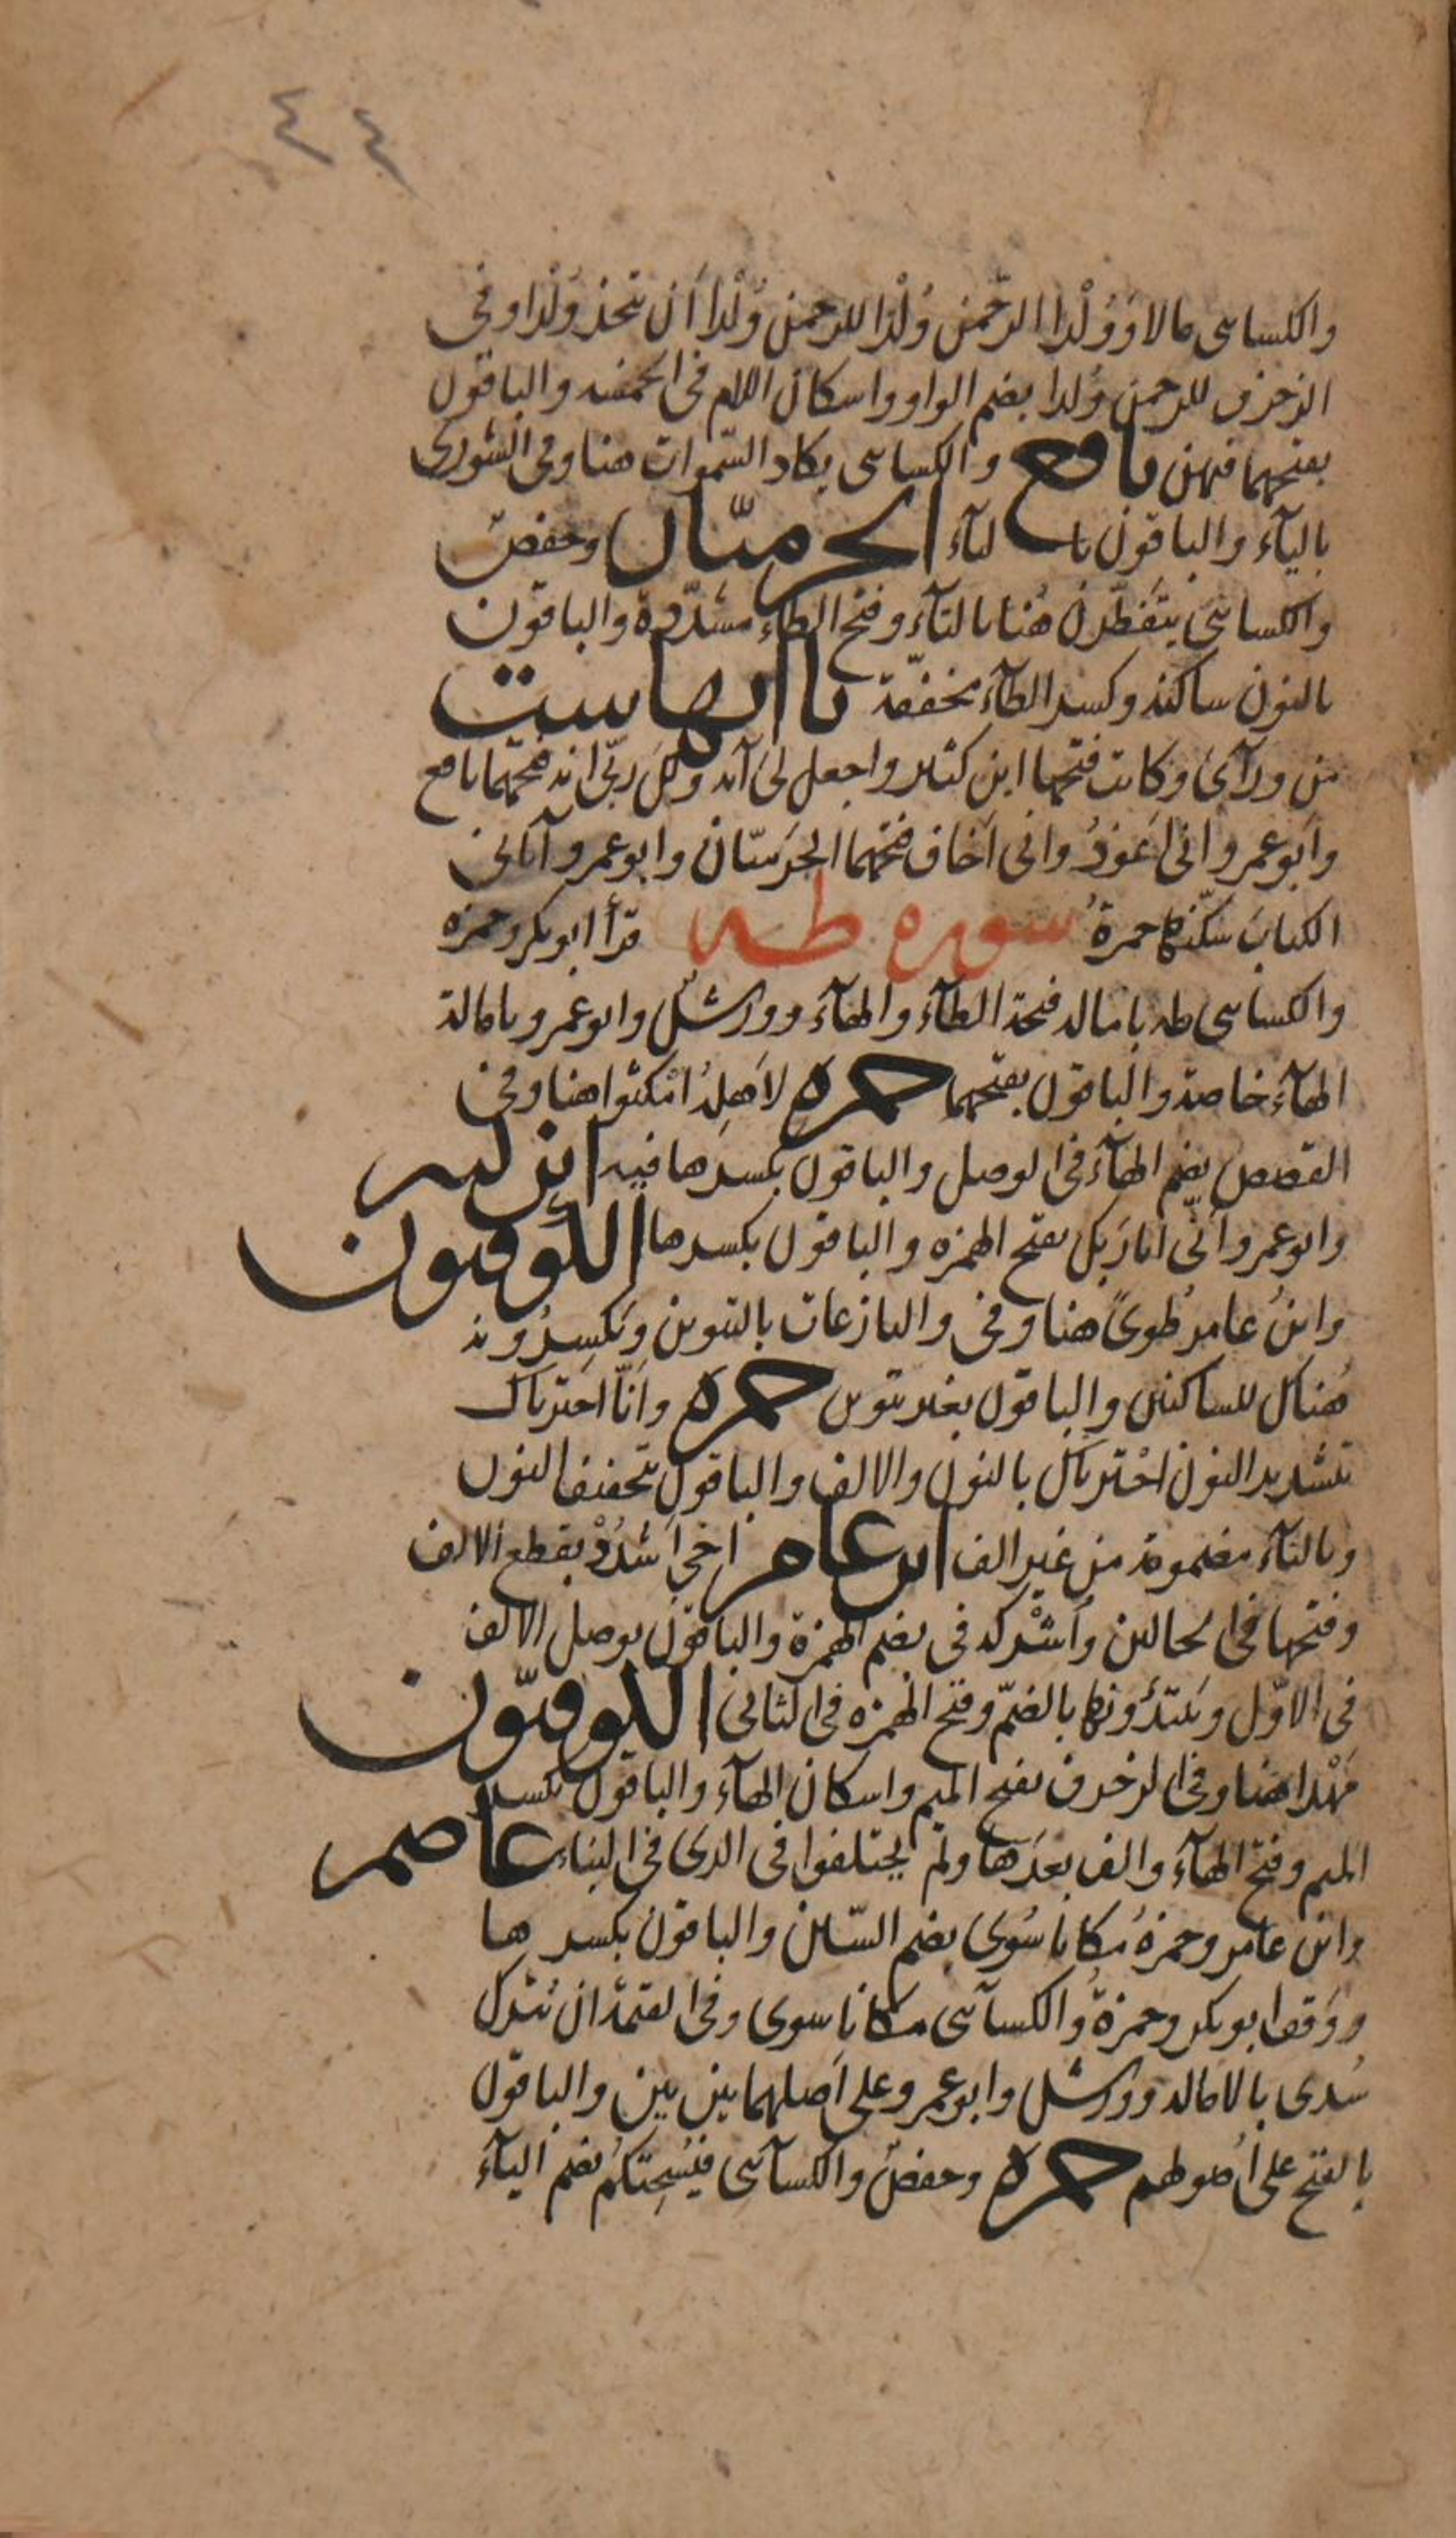 ٤٤
والكساى مالا وَوُلْدا الرّحمن وُلْدا للرحمن وُلْدا أن يتخذ وُلْدا وفى
الزخرف للرحمن وُلدا بضم الواو واسكان اللام فى الخمسه والباقون
بفتحهما فيهن نافع والكساى يكاد السّموات هنا وفى الشورى
باليآء والباقون بالتآء الحرميّان وحفصٌ
والكساىّ يتفطّرن هُنا بالتآء وفتح الطاء مشدّدة والباقون
بالنون ساكنه وكسر الطآء مخففّة ياآتها ست
من ورآئ وكانت فتحها ابن كثير واجعل لى آيه وكل ربّى انه فتحهما نافع
وأبو عمرو انى أعوذُ وانى أخاف فتحهما الحَرميّان وابو عمرو آتانى
الكتابَ سكّنها حمزةُ سوره طه قرأ ابو بكر وحمزه
والكساى طه بامالة فتحة الطآء والهآء وورشٌ وابو عمرو بامالة
الهآء خاصة والباقون بفتحهما حمزه لاَهلِهُ امْكثوا هنا وفى
القصص بضم الهآء فى الوصل والباقون بكسرها فيه ابن كثير
وابو عمرو أنّى انا ربك بفتح الهمزه والباقون بكسرها الكوفيون
وابنُ عامر طُوىً هنا وفى والنازعات بالتنوين ويكسِرُونه
هُناك للساكنين والباقون بغير تنوين حمزه وأنّا اخترناك
بتشديد النون اخْترناك بالنون والالف والباقون بتخفيف النون
وبالتآء مضمومة من غير الف ابن عامر اخى أَشدُدْ بقطع الالف
وفتحها فى الحالين وأُشْركه فى بضم الهمزة والباقون بوصل الالف
فى الاوّل ويبتدؤنها بالضمّ وفتح الهمزه فى الثانى الكوفيّون
مَهْدا هنا وفى الزخرف بفتح الميم واسكان الهآء والباقون بكسر
الميم وفتح الهآء والف بعدَها ولم يختلفوا فى الذى فى النباء عاصم
وابن عامر وحمزةُ مكانا سُوى بضم السّين والباقون بكسرها
ووَقف ابو بكر وحمزةُ والكسآى مكانا سوى وفى القيمة ان يُترك
سُدى بالامالة وورشٌ وابو عمرو على اَصلهما بين بين والباقون
بالفتح على أُصولهم حمزه وحفصٌ والكسآى فيُسْحِتكُم بضم اليآء